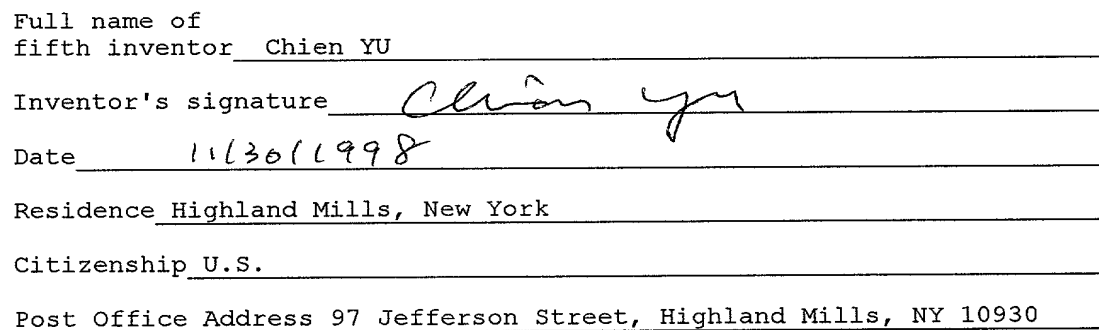 Full name of
fifth inventor Chien YU
Inventor's signature Chien Yu
Date 11/30/1998
Residence Highland Mills, New York
Citizenship U.S.
Post Office Address 97 Jefferson Street, Highland Mills, NY 10930